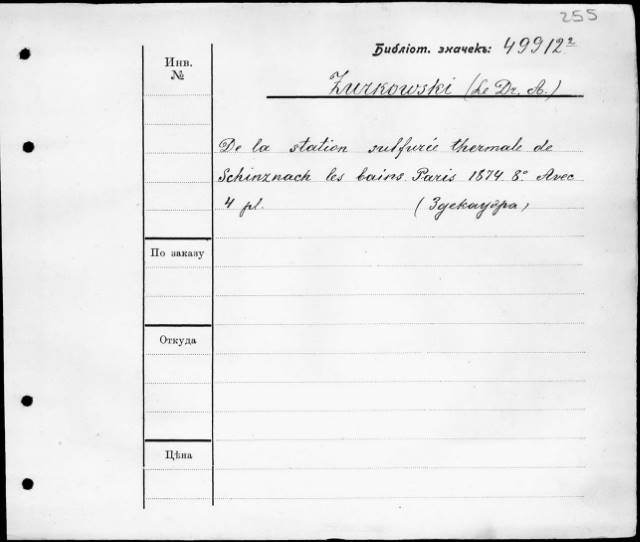 255
Библіот. значекъ: 49912²
Инв.
№
Zurkowski (Le Dr. A.)
De la station sulfurée thermale de
Schinznach les bains. Paris 1874. 8° Avec
4 pl. (Здекауэра)
По заказу
Откуда
Цѣна